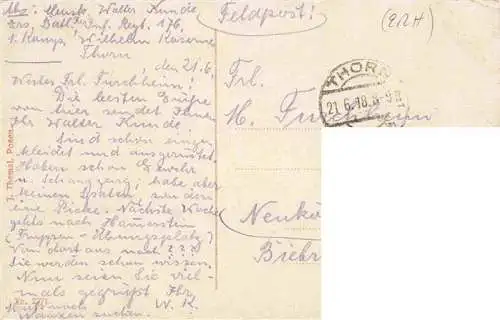 Abs: Musk. Walter Kunde
Ers. Batl. Inf. Regt. 176,
1. Komp. Wilhelm Kaserne
Thorn
Feldpost!
(ERH)
, den 21.6.
Wertes Frl. Furchheim!
Die besten Grüsse
von hier sendet Ihnen
Ihr Walter Kunde.
Sind schon eingekleidet
und ausgerüstet.
Haben schon Gewehr
u. Schanzzeug; habe aber
keinen Spaten sondern
eine Picke. Nächste Woche
gehts nach
(Truppen-Übungsplatz)
Von dort aus nach ? ? ?
Sie werden schon wissen.
Nun seien Sie viel-
mals gegrüsst Ihr
W. K.
Muss noch
Wanzen suchen.
Frl.
M. Furchheim
Neukö
Biebr
THORN
21.6.18.8-9
J. Themal, Posen